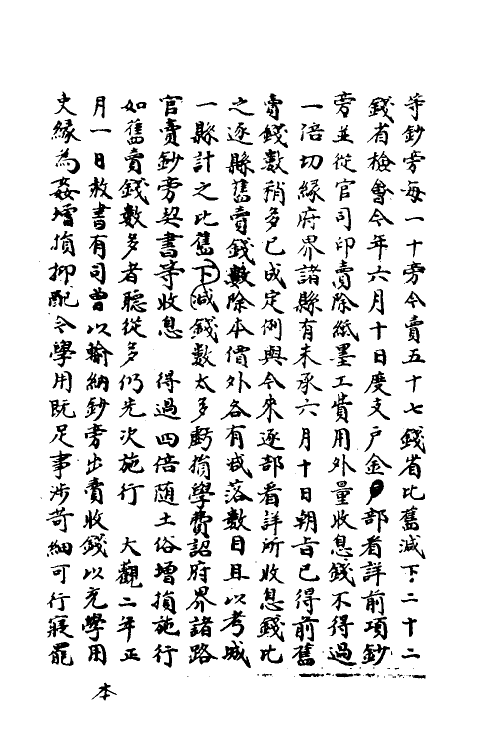 等鈔旁每一十旁今賣五十七錢省比舊減下二十二
錢省檢會今年六月十日度支戶金部看詳前項鈔
旁並從官司印賣除紙墨工費用外量收息錢不得過
一倍切緣府界諸縣有未承六月十日朝旨已得前舊
賣錢數稍多已成定例與今來逐部看詳所收息錢比
之逐縣舊賣錢數除本價外各有減落數目且以考城
一縣計之比舊下減錢數太多虧損學費詔府界諸路
官賣鈔旁契書等收息 得過四倍隨土俗增損施行
如舊賣錢數多者聽從多仍先次施行 大觀二年正
月一日赦書有司曹以輸納鈔旁出賣收錢以充學用
史緣為姦增損抑配今學用既足事涉苛細可行寢罷
本